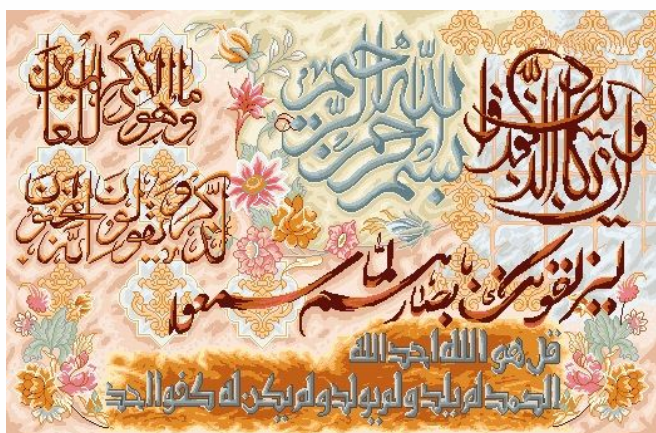 بسم الله الرحمن الرحيم
وان يكاد الذين كفروا
ليزلقونك بابصارهم لما سمعوا
الذكر ويقولون انه لمجنون
وما هو الا ذكر للعالمين
قل هو الله احد الله
الصمد لم يلد و لم يولد و لم يكن له كفوا احد